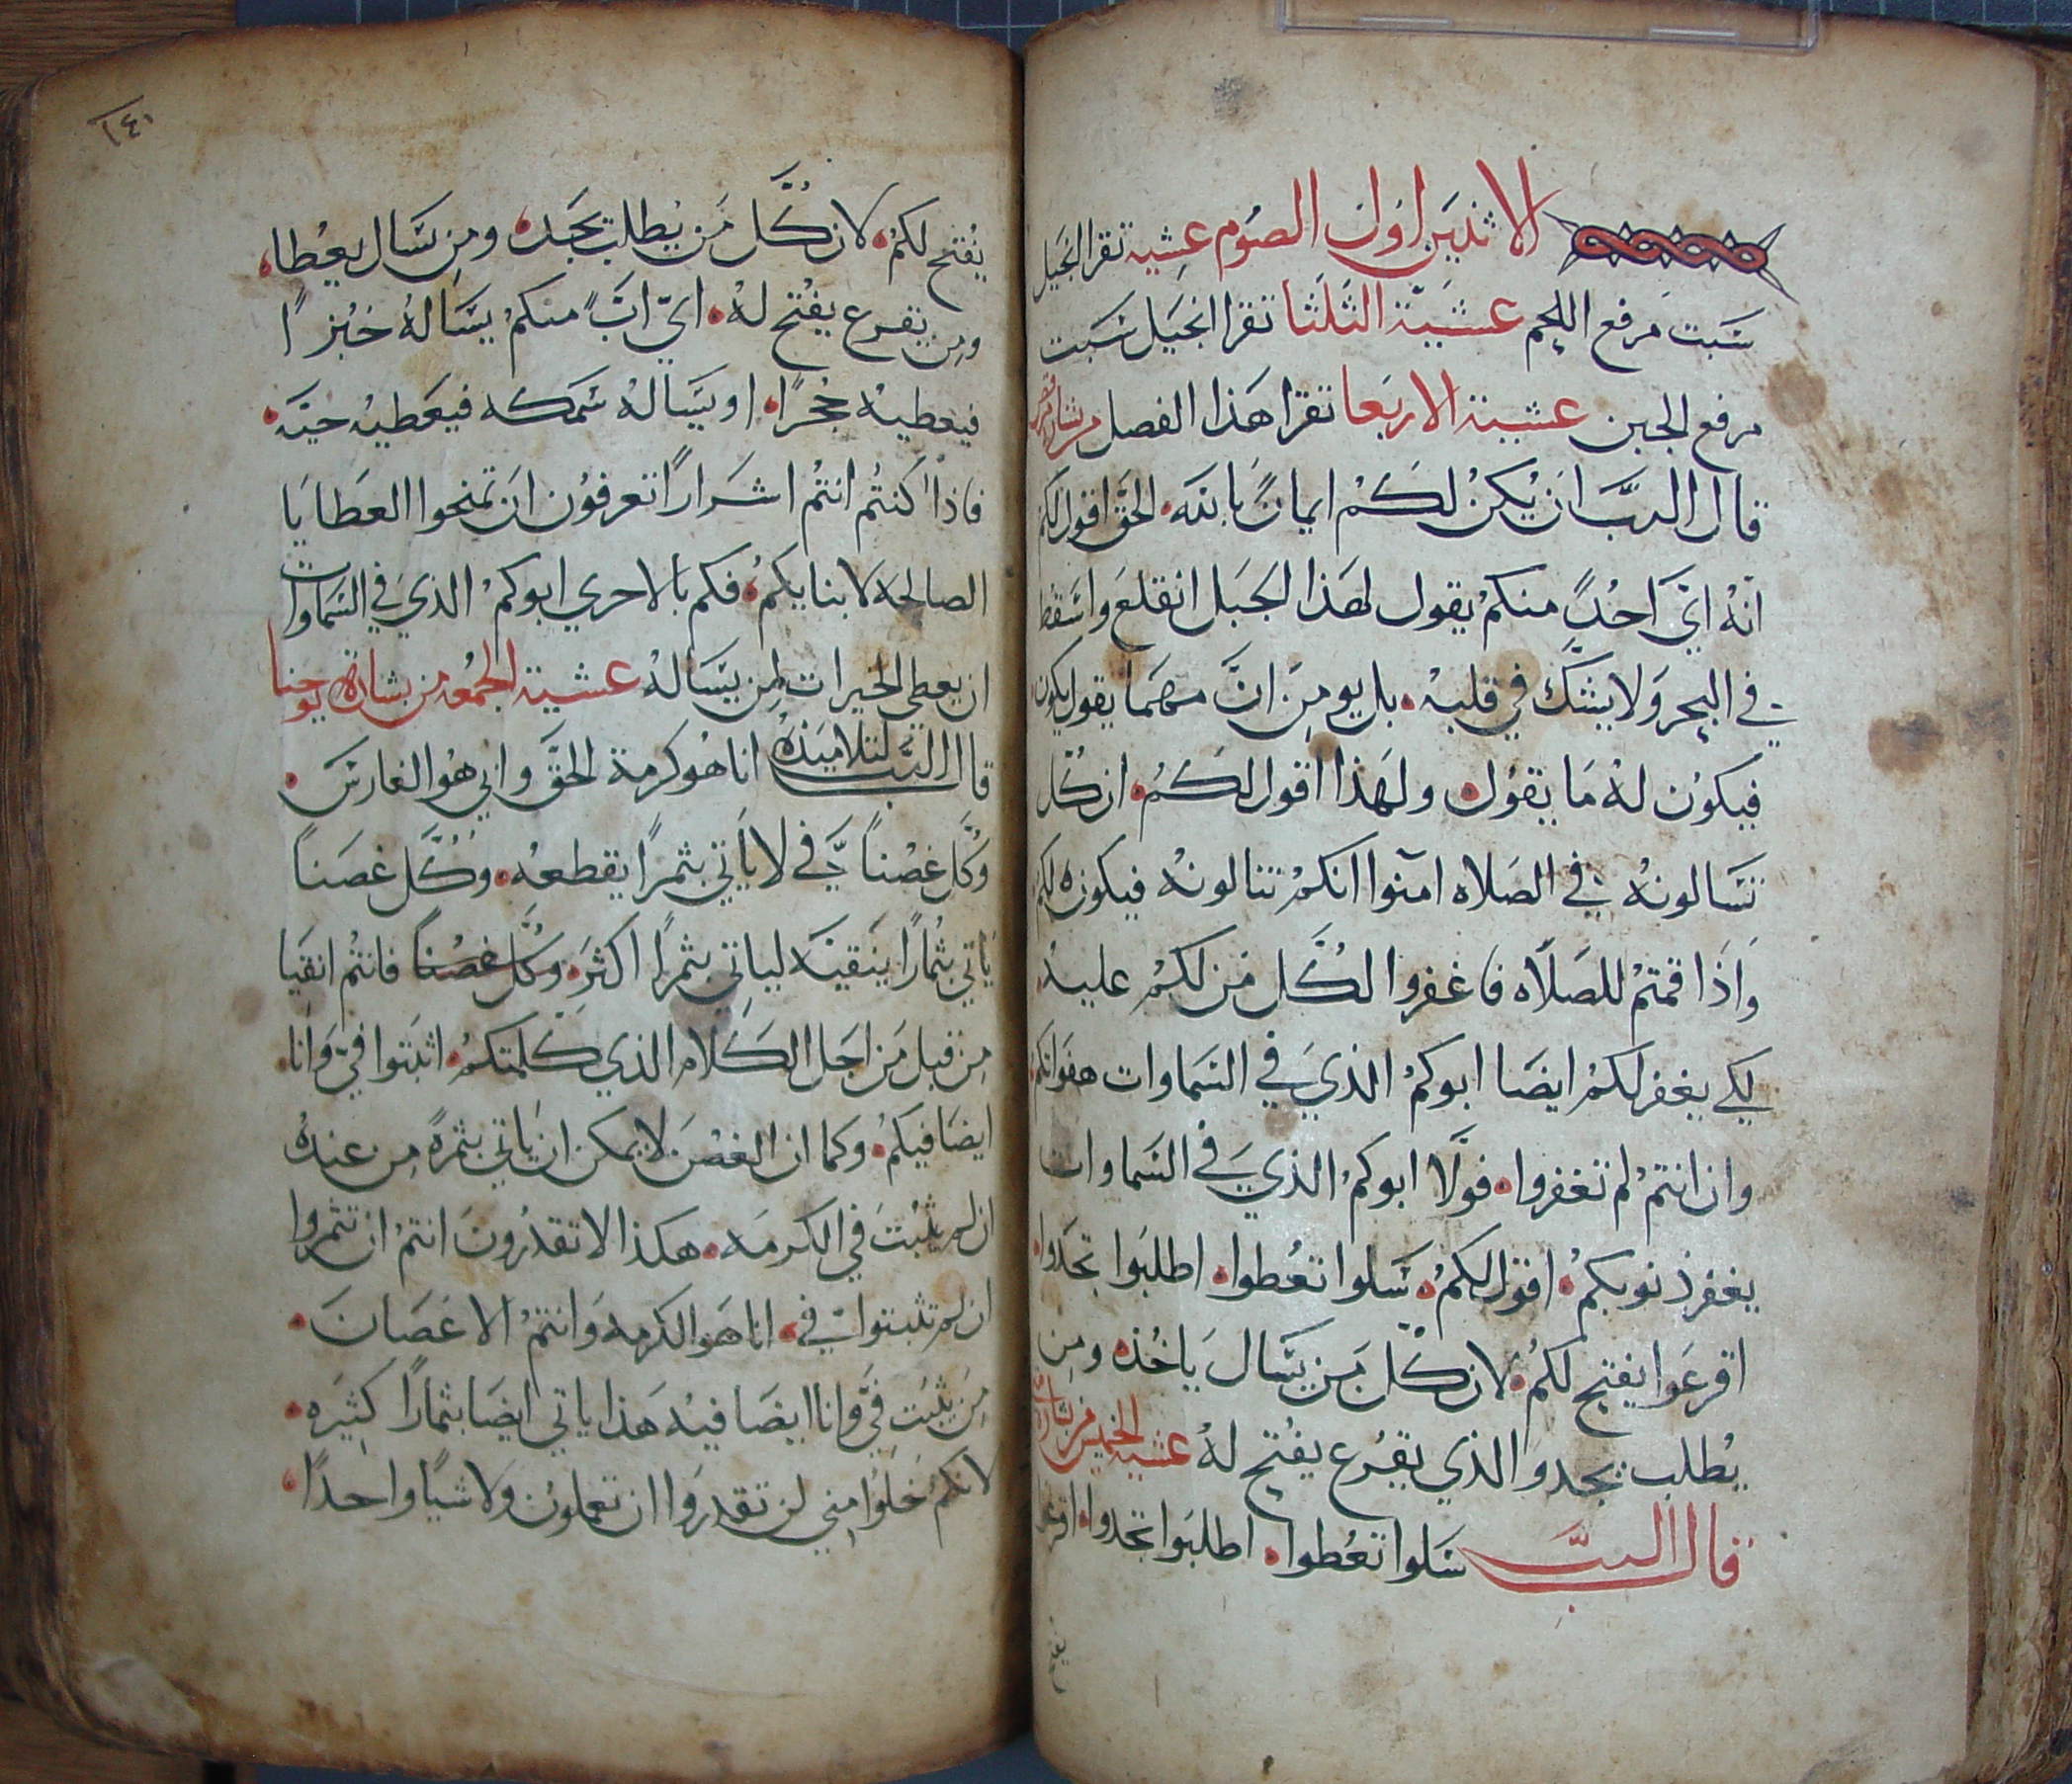 الاثنين اول الصوم عشية تقرا انجيل
سَبت مرفع اللحم عشيّة الثلثا تقرا انجيل سَبت
مرفع الجبن عشية الاربعا تقرا هذا الفصل من بشارة مرقس
قال الربَّ ان يُكنْ لكمْ ايمانً بالله، الحَقَّ اقول لكم
انّهْ ايَّ احدٍ منكمْ يقول لهَذا الجَبل انقلعَ واسَقط
في البحر وَلا يشكّ في قلبهْ، بل يومِنَ انَّ مهمَا يقول يكون
فيكوُن لهْ مَا يقوُل، ولهَذا اقول لكمُ، ان كُل
تسَالونهْ في الصَلاه امنوا انكمْ تنالونهْ فيكون لكم
وَاذا قمتمْ للصَلاه فاغفروا لكُلَّ مَن لكمُ عليهْ،
لكي يغفر لكمْ ايضَا ابوكمْ الذيَ في السَماوات هفواتكمْ
وان انتمْ لم تغفروا، فوَلا ابوكمْ الذيَ في السَماوات
يغفر ذنوبكمْ، اقول لكمُ، سَلوا تعُطوا، اطلبَوا تجَدوا،
اقرعَوا يفتح لكمُ، لان كل مَن يسَال يَاخُذه ومن
يُطلب يجد والذي يقرع يفتح لهُ عشية الخميس من بشارة
قال الربَّ سَلوا تعُطوا، اطلبَوا تجدوا، اقرعوا
يفتح
١٤٠
يُفتح لكمُ، لان كُلَّ مَن يُطلب يجَد، ومن سَال يعُطا،
ومن يقرع يفُتح لهْ، ايّ ابً منكمْ يسَالهُ خبُزًا
فيعطيهْ حُجرًا، او يسَالهْ سَمكه فيعَطيهْ حيّه،
فاذا كنتمُ انتمُ اشَرارًا تعرفوُن ان تمنحوا العَطايَا
الصالحَه لابنايكمُ، فكم بالاحري ابوكمْ الذيَ في السَماوات
ان يعطي الخيرات لمن يسَالهْ عشية الجمُعه من بشارة يوحنا
قال الربَّ لتلاميَذهُ انا هُو كرمة الحَقَّ وابي هُو الغارسَ،
وكُلَّ غصْناً فيَّ لا يَاتي بثمرًا يقطعهْ، وكُلَّ غصَناً
يَاتي بثمُارًا ينَقيهَ لياتي بثمرًا اكثَر، وكُلَّ غصْناً فانتمْ انقيَا
من قبل مَن اجَل الكَلام الذي كلمتكمْ، اثبَتوا فيّ وَانا
ايضَا فيكمْ، وكما ان الغصْنَ لا يمكن ان ياتي بثمَرةً من عندهُ
ان لم يثبُتَ في الكرمَه، هكذا لا تقدرُونَ انتمْ ان تثمروا
ان لم تثبتوا فيّ، انا هَو الكرمه وَانتمُ الاغصَانَ،
مَن يثبت فيَّ وَانا ايضَا فيهْ هَذا ياتي ايضَا بثمارًا كثيَره،
لانكمُ خَلوَا مِني لن تقدروَا ان تعملوُن ولا شيًا واحدًا،